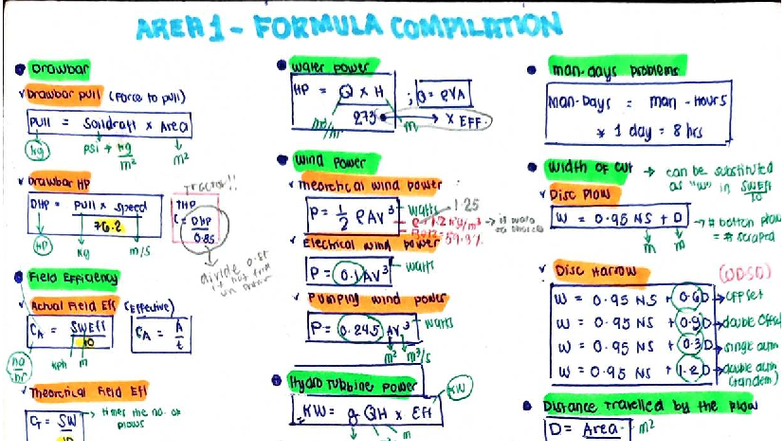 AREA 1 - FORMULA COMPILATION
Drawbar
Drawbar pull (Force to pull)
Pull = Soildraft x Area
kg
psi → kg/m²
m²
Drawbar HP
TRACTOR!!
DHP = Pull x Speed
76.2
DHP
0.85
HP
kg
m/s
divide 0.85
Field Efficiency
Actual Field Eff (Effective)
CA = SWEff
10
CA = A/t
ha/hr
kph
m
Theoretical Field Eff
CT = SW
10
times the no. of plows
Water power
HP = Q x H
273
; Q = PVA
m
x EFF.
Wind Power
Theoretical wind power
P = 1/2 ρAV³
Watts
1.25
ρ = 1.2 kg/m³
59.3%
Electrical wind power
P = 0.1AV³
watts
Pumping wind power
P = 0.245 AV³
watts
m²
m³/s
Hydro Turbine Power
KW
KW = g QH x Eff
m
man-days problems
Man-Days = man-hours
* 1 day = 8 hrs
Width of cut → can be substituted
as "W" in SWEff
10
Disc Plow
W = 0.95 NS + D
→ # bottom plow
= # scraped
m
m
Disc Harrow
W = 0.95 NS + 0.6D → Offset
W = 0.95 NS + 0.9D → double Offset
W = 0.95 NS + 0.3D → single action
W = 0.95 NS + 1.2D → double action
(tandem)
Distance travelled by the plow
D = Area
m²